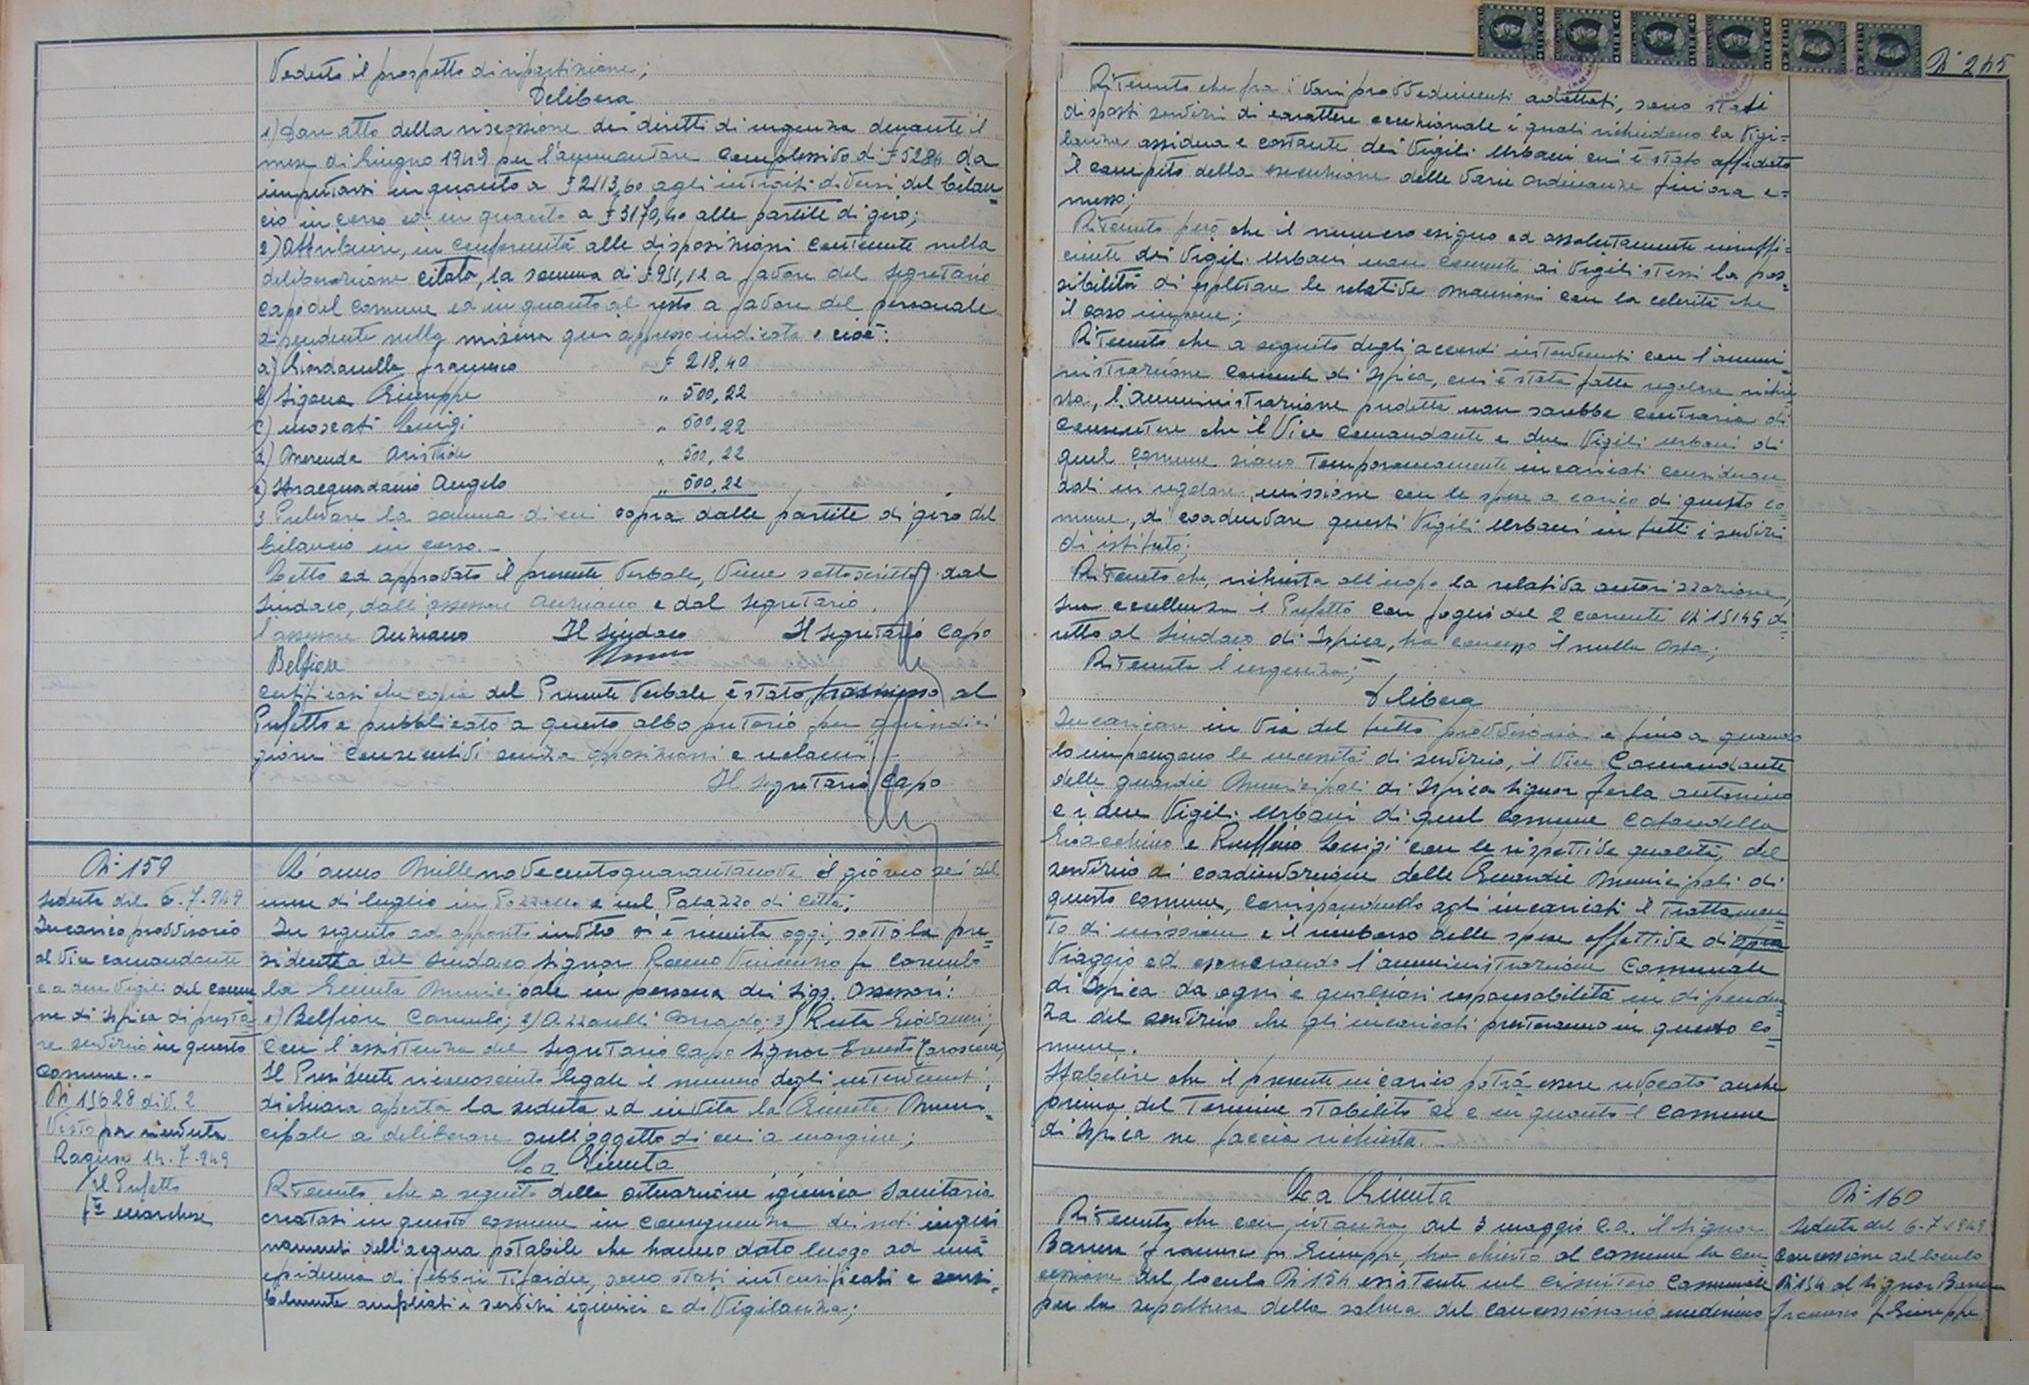 Veduto il prospetto di ripartizione;
Delibera
1) Dare atto della riscossione dei diretti di urgenza durante il
mese di Giugno 1949 per l'ammontare complessivo di £ 5284 da
imputarsi in quanto a £ 2113,60 agli introiti diversi del bilan=
cio in corso ed in quanto a £ 3170,40 alle partite di giro;
2) Attribuire, in conformità alle disposizioni contenute nella
deliberazione citata, la somma di £ 951,12 a favore del segretario
capo del comune ed in quanto al resto a favore del personale
dipendente nella misura qui appresso indicata e cioè:
a) Giordanella Francesco £ 218,40
b) Sigona Giuseppe " 500,22
c) Moscati Luigi " 500,22
d) Merenda Aristide " 500,22
e) Stracquadanio Angelo " 500,22
3 Prelevare la somma di cui sopra dalle partite di giro del
bilancio in corso.-
Letto ed approvato il presente verbale, viene sottoscritto dal
Sindaco, dall'assessore anziano e dal segretario.
l'assessore anziano Il Sindaco Il Segretario Capo
Belfiore
Certificasi che copia del presente verbale è stato trasmesso al
Prefetto e pubblicato a questo albo pretorio per quindici
giorni consecutivi senza opposizioni e reclami.
Il Segretario Capo
N. 159
Seduta del 6-7-949
Incarico provvisorio
al Vice comandante
e a due Vigili del comu
ne di Ispica di presta
re servizio in questo
comune.-
N. 15628 div. 2
Visto per seduta
Ragusa 14-7-949
p/ il Prefetto
fto Marchese
L'anno Millenovecentoquarantanove il giorno sei del
mese di luglio in Pozzallo e nel Palazzo di città;
In seguito ad apposito invito si è riunita oggi, sotto la pre=
sidenza del Sindaco Signor Vincenzo fu Carmelo
la Giunta Municipale in persona dei Sigg. Assessori:
1) Belfiore Carmelo; 2) Azzarelli Corrado; 3) Ruta Giovanni;
Con l'assistenza del Segretario Capo Signor Ernesto
Il Presidente riconosciuto legale il numero degli intervenuti
dichiara aperta la seduta ed invita la Giunta Muni=
cipale a deliberare sull'oggetto di cui a margine;
La Giunta
Ritenuto che a seguito della situazione igienica sanitaria
creatasi in questo comune in conseguenza dei noti inqui
namenti dell'acqua potabile che hanno dato luogo ad una
epidemia di febbri tifoidee, sono stati intensificati e sensi=
bilmente ampliati i servizi igienici e di Vigilanza;
N. 245
Ritenuto che fra i vari provvedimenti adottati, sono stati
disposti servizi di carattere eccezionale i quali richiedono la Vigi=
lanza assidua e costante dei Vigili Urbani cui è stato affidato
il compito della esecuzione delle varie ordinanze finora e=
messo;
Ritenuto però che il numero esiguo ed assolutamente insuffi=
ciente dei Vigili Urbani non consente ai Vigili stessi la pos=
sibilità di espletare le relative mansioni con la celerità che
il caso impone;
Ritenuto che a seguito degli accordi intervenuti con l'ammi
nistrazione comunale di Ispica, cui è stata fatta regolare richie
sta, l'amministrazione predetta non sarebbe contraria di
consentire che il Vice comandante e due Vigili urbani di
quel comune siano temporaneamente incaricati consideran
doli in regolare missione con le spese a carico di questo co=
mune, di coadiuvare questi Vigili Urbani in tutti i servizi
di istituto;
Ritenuto che, richiesta all'uopo la relativa autorizzazione,
Sua eccellenza il Prefetto con foglio del 2 corrente N. 15149 di=
retto al Sindaco di Ispica, ha concesso il nulla osta;
Ritenuta l'urgenza;
Delibera
Incaricare in via del tutto provvisoria e fino a quando
lo impongono le necessità di servizio, il Vice Comandante
delle guardie Municipali di Ispica Signor Ferla Antonino
e i due Vigili Urbani di quel comune
Gioacchino e Ruffino Luigi con le rispettive qualità, del
servizio di coadiuvazione delle Guardie Municipali di
questo comune, corrispondendo agli incaricati il trattamen=
to di missione e il rimborso delle spese effettive di
Viaggio ed esonerando l'amministrazione Comunale
di Ispica da ogni e qualsiasi responsabilità in dipenden
za del servizio che gli incaricati presteranno in questo co=
mune.
Stabilire che il presente incarico potrà essere revocato anche
prima del termine stabilito se e in quanto il comune
di Ispica ne faccia richiesta.-
La Giunta
Ritenuto che con istanza del 3 maggio c.a. il signor
Francesco fu Giuseppe, ha chiesto al comune la con
cessione del loculo N. 154 esistente nel cimitero comunale
per la sepoltura della salma del concessionario medesimo
N. 160
Seduta del 6-7-1949
Concessione del loculo
N. 154 al Signor
Francesco fu Giuseppe